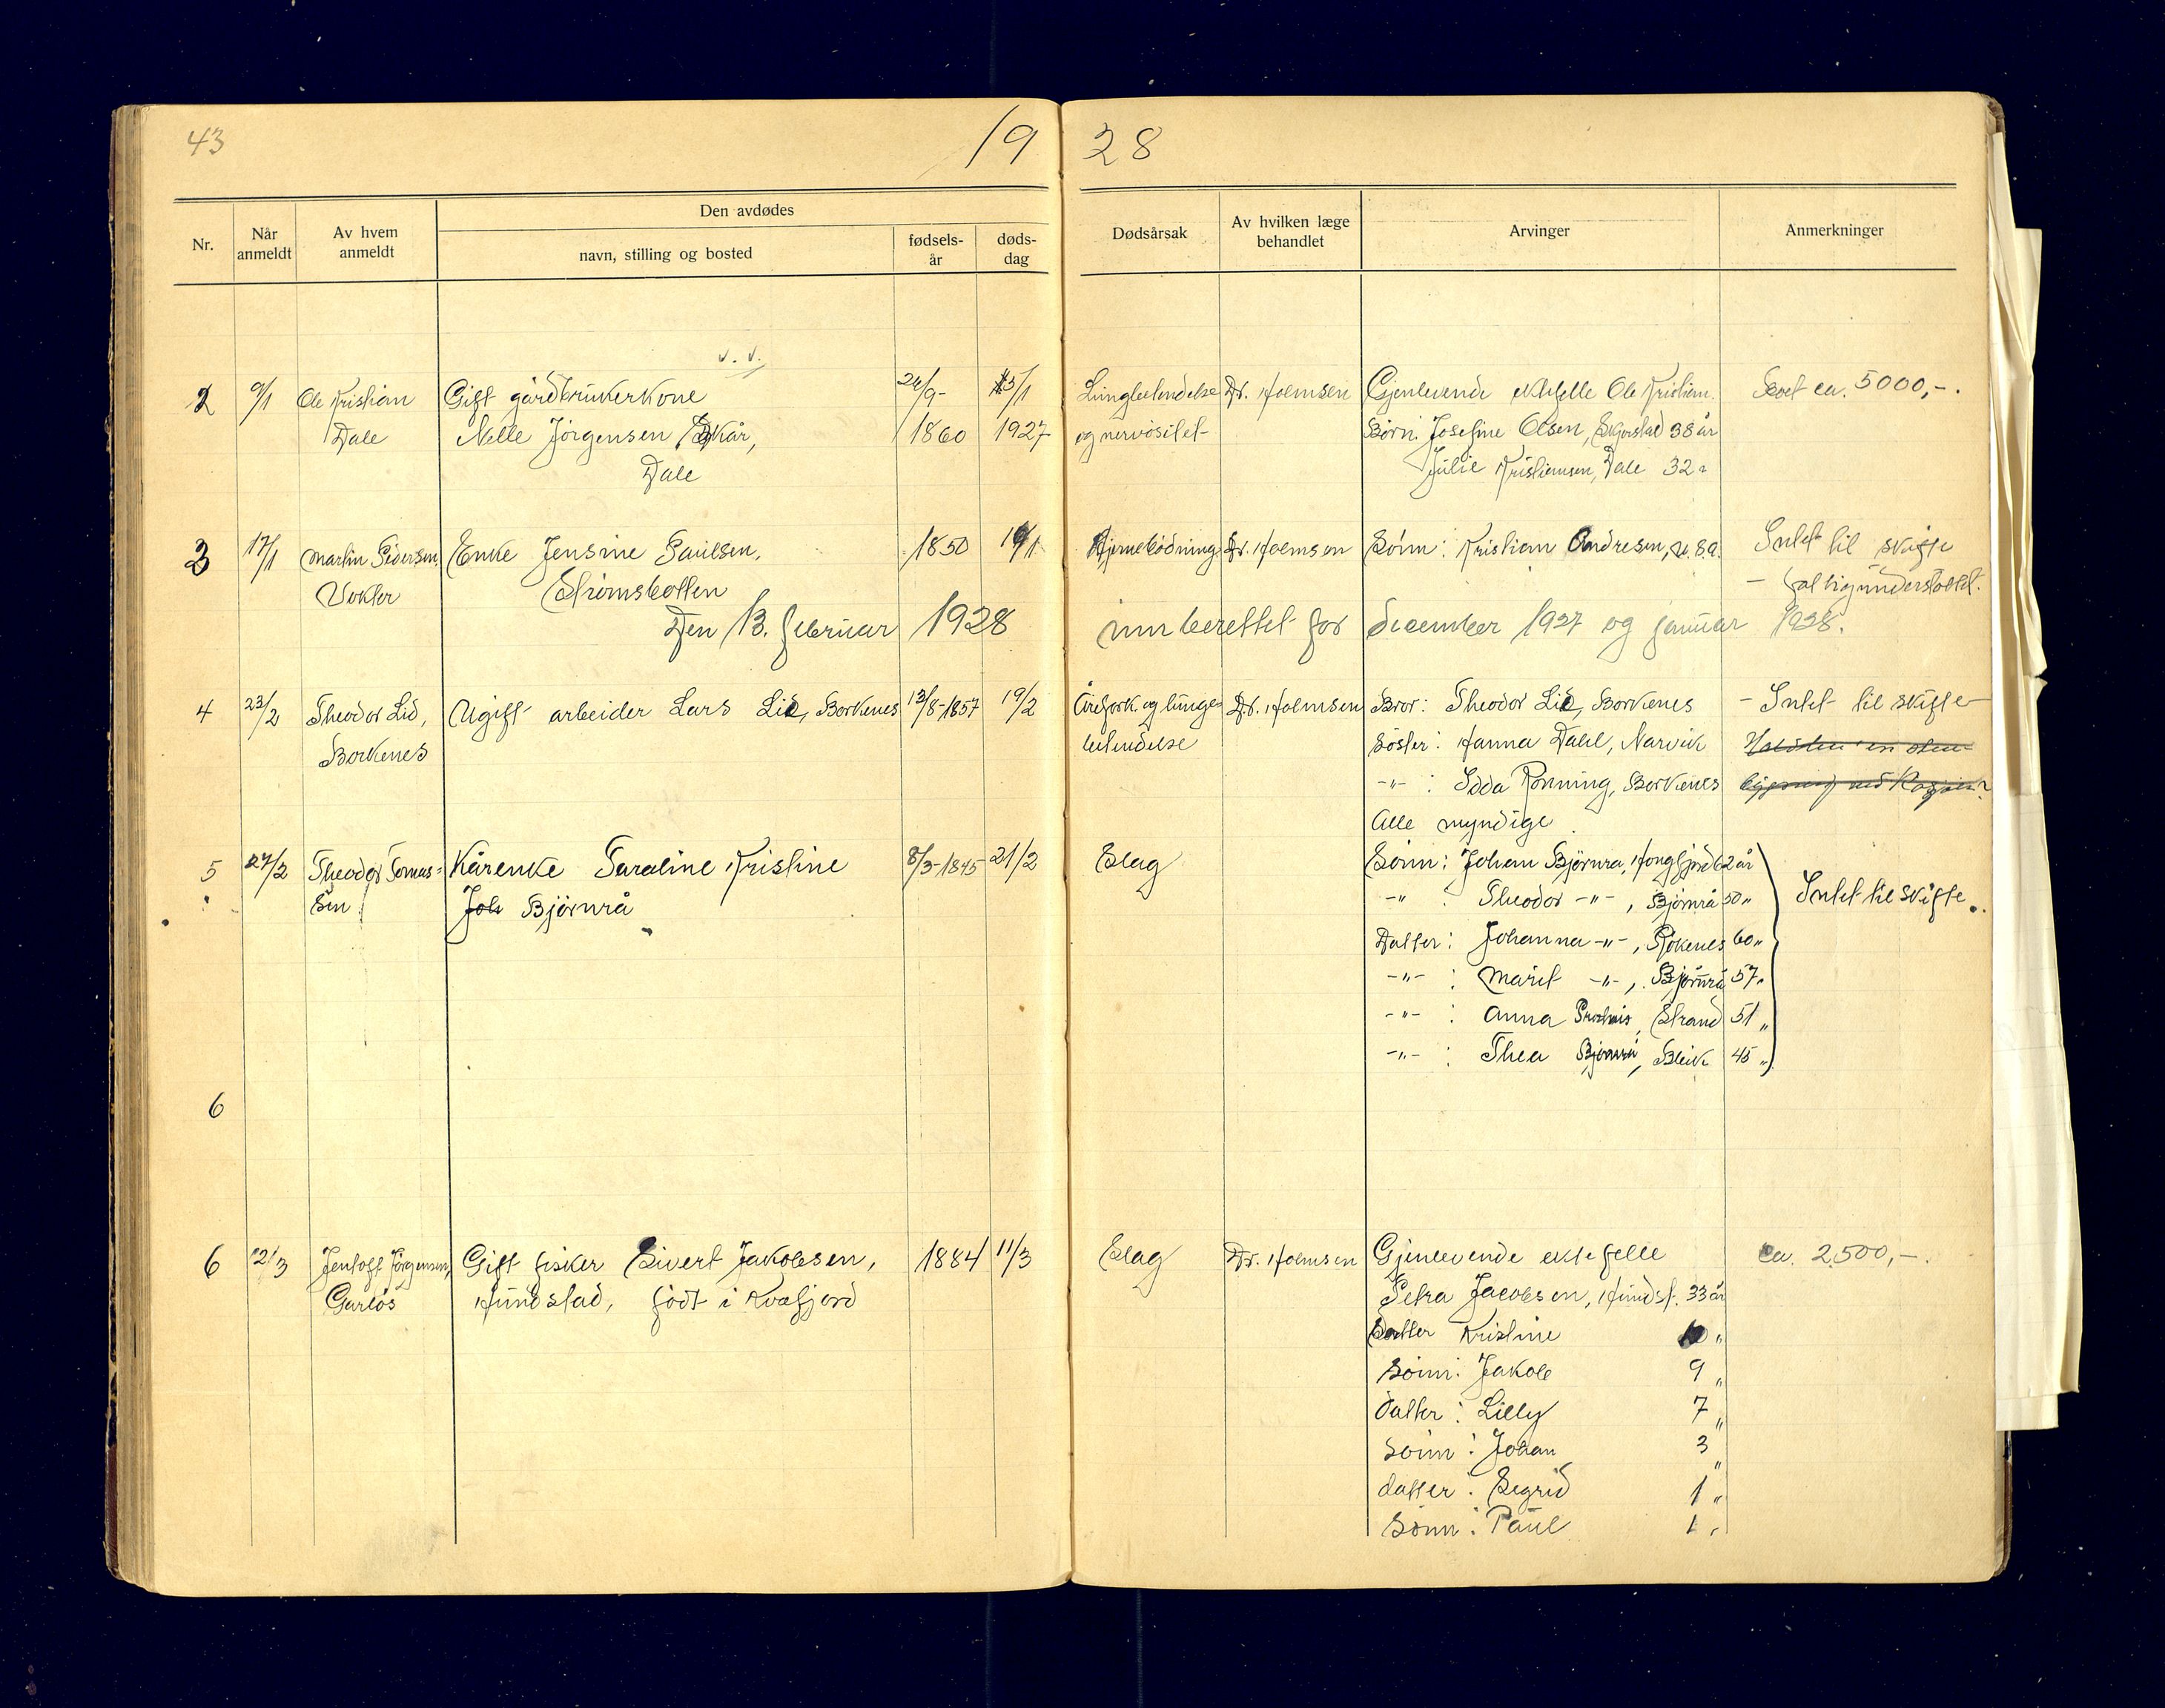 43
19 28
Nr.
Når anmeldt
Av hvem anmeldt
Den avdødes
navn, stilling og bosted
fødsels-år
døds-dag
Dødsårsak
Av hvilken læge behandlet
Arvinger
Anmerkninger
v. v.
2 9/1 Ole Kristian Gift gårdbrukerkone 24/9- 13/1 Lungbetendelse Dr. Holmsen Gjenlevende ektefelle Ole Kristian. Boet ca. 5000,-.
Dale Nelle Jørgensen Skår, 1860 1927 og nervøsitet Børn: Josefine Olsen, 38 år
Dale Julie Kristiansen, Dale 32 "
3 17/1 Martin Pedersen, Enke Jensine Paulsen, 1850 Hjerneblødning Dr. Holmsen Sønn: Kristian Andresen, U.S.A. Intet til skifte
Vokter Strømsbotten – fattigunderstøttet.
Den 13. februar 1928 innberettet for december 1927 og januar 1928.
4 23/2 Theodor Lid, Ugift arbeider Lars Lie, Borkenes 13/8-1857 19/2 Årefork. og lunge- Dr. Holmsen Bror: Theodor Lie, Borkenes – Intet til skifte
Borkenes betendelse Søster: Hanna Dahl, Narvik
-"- : Edda Rønning, Borkenes
Alle myndige
5 27/2 Theodor Tomas- Kårenke Taraline Kristine 8/3-1845 21/2 Slag Sønn: Johan Bjørnrå, 62 år
sen Joh Bjørnrå -"- : Theodor -"-, Bjørnrå 50 " Intet til skifte.
Datter: Johanna -"-, Røkenes 60 "
-"- : Marit -"-, Bjørnrå 57 "
-"- : Anna Strand 51 "
-"- : Thea Bjørnrå, Bleik 45 "
6
6 12/3 Jentoft Jørgensen, Gift fisker Sivert Jakobsen, 1884 11/3 Slag Dr. Holmsen Gjenlevende ektefelle ca. 2500,-.
Garløs Hundstad, født i Kvæfjord Petra Jacobsen, Hundst. 33 år
Datter Kristine 10 "
Sønn: Jakob 9 "
Datter: Lilly 7 "
Sønn: Johan 3 "
datter: Sigrid 1 "
Sønn: Paul 1 "